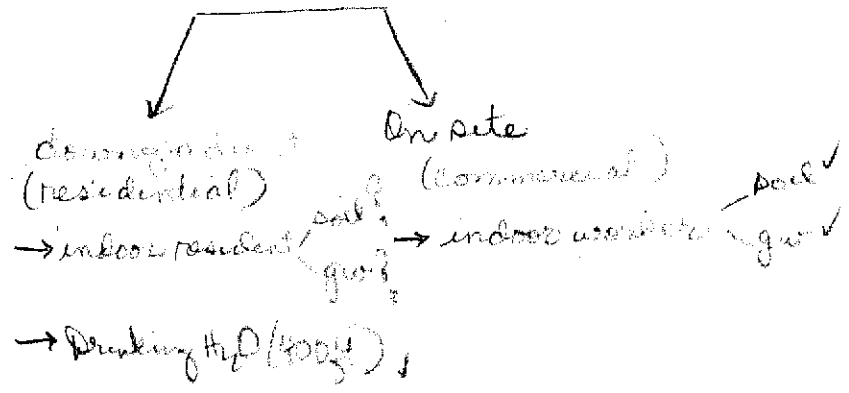 downgradient
(residential)
→ indoor resident
soil?
gw?
→ Drinking H₂O (400
On site
(commercial)
→ indoor worker
soil ✓
gw ✓